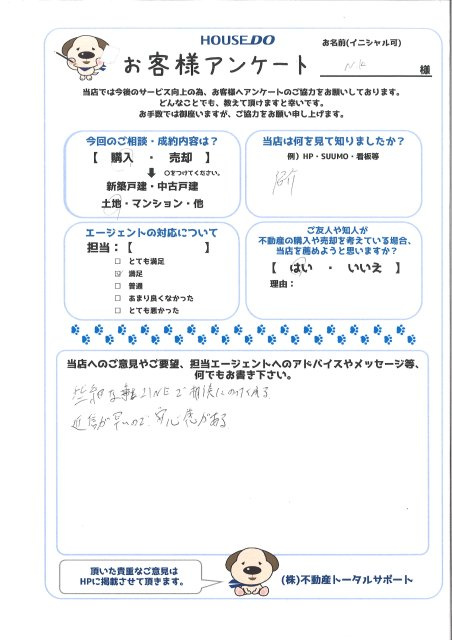 HOUSE DO
お客様アンケート
お名前(イニシャル可)
N.K 様
当店では今後のサービス向上の為、お客様へアンケートのご協力をお願いしております。
どんなことでも、教えて頂けますと幸いです。
お手数では御座いますが、ご協力をお願い申し上げます。
今回のご相談・成約内容は?
【 購入 ・ 売却 】
○をつけてください。
新築戸建・中古戸建
土地・マンション・他
当店は何を見て知りましたか?
例)HP・SUUMO・看板等
紹介
エージェントの対応について
担当:【 】
□ とても満足
☑ 満足
□ 普通
□ あまり良くなかった
□ とても悪かった
ご友人や知人が
不動産の購入や売却を考えている場合、
当店を薦めようと思いますか?
【 はい ・ いいえ 】
理由:
当店へのご意見やご要望、担当エージェントへのアドバイスやメッセージ等、
何でもお書き下さい。
些細な事もLINEで相談にのってくれる
返信が早いので安心感がある
頂いた貴重なご意見は
HPに掲載させて頂きます。
(株)不動産トータルサポート